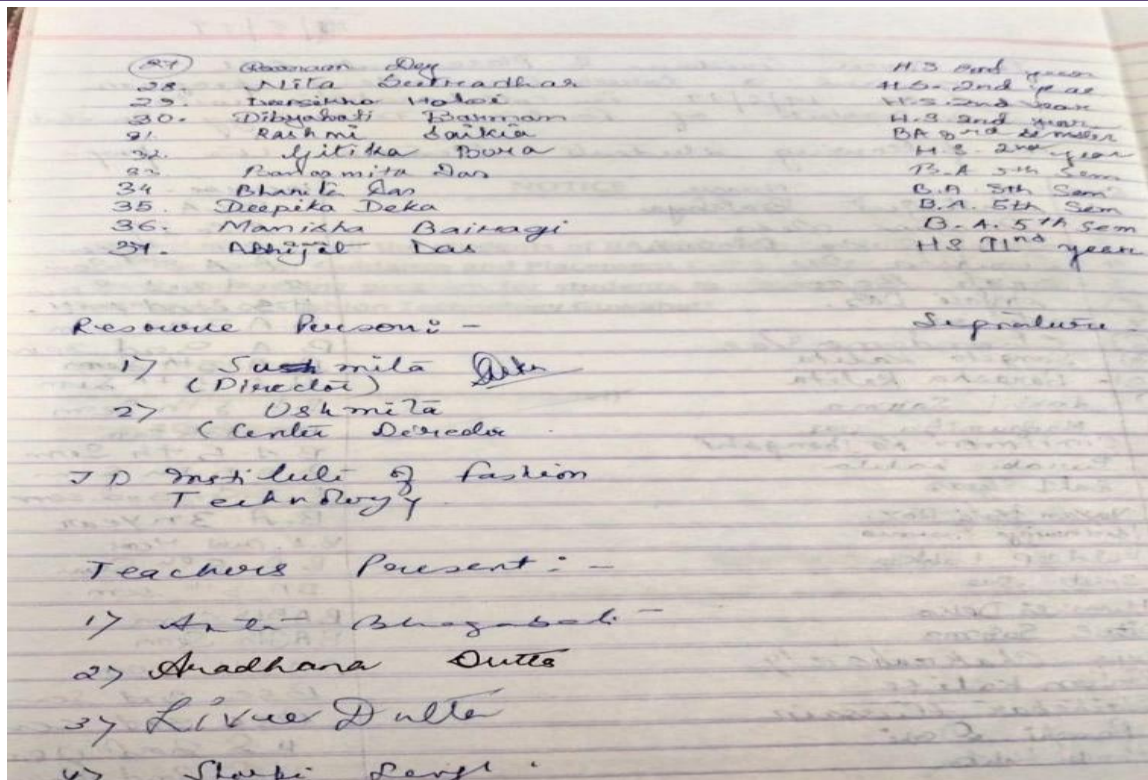 27 Dey H.S 2nd year
28. Nita Sutradhar H.S. 2nd year
29. Haloi H.S. 2nd year
30. Dibyabati Barman H.S 2nd year
31. Rashmi Saikia BA 3rd semester
32. Gitika Bora H.S. 2nd year
33. Das B.A 5th Sem
34 Bhanita Das B.A 5th Sem
35. Deepika Deka B.A. 5th Sem
36. Manisha Bairagi B.A. 5th Sem
37. Abhijit Das HS IInd year
Resource Person: - Signature
1) Sushmita
(Director)
2) Ushmita
(Center Director
J D Institute of fashion
Technology
Teachers Present: -
1) Bhagabati
2) Aradhana Dutta
3) Dutta
4)